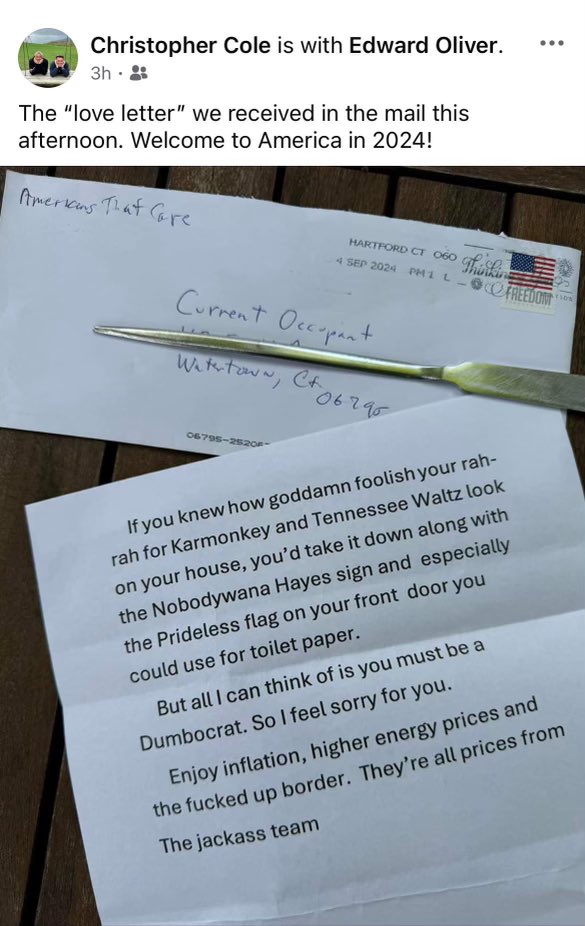 Christopher Cole is with Edward Oliver.
3h ·
The “love letter” we received in the mail this
afternoon. Welcome to America in 2024!
Americans That Care
HARTFORD CT 060
4 SEP 2024 PM 1 L
FREEDOM
Current Occupant
Watertown, Ct
06795
If you knew how goddamn foolish your rah-
rah for Karmonkey and Tennessee Waltz look
on your house, you’d take it down along with
the Nobodywana Hayes sign and especially
the Prideless flag on your front door you
could use for toilet paper.
But all I can think of is you must be a
Dumbocrat. So I feel sorry for you.
Enjoy inflation, higher energy prices and
the fucked up border. They’re all prices from
The jackass team